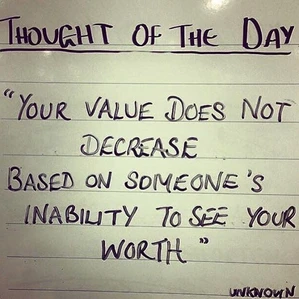 THOUGHT OF THE DAY
"YOUR VALUE DOES NOT
DECREASE
BASED ON SOMEONE'S
INABILITY TO SEE YOUR
WORTH"
UNKNOWN